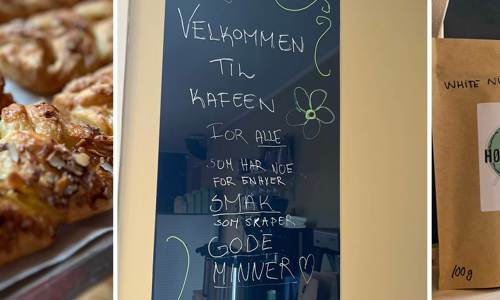 VELKOMMEN
TIL
KAFEEN
FOR ALLE
SOM HAR NOE
FOR ENHVER
SMAK
SOM SKAPER
GODE
MINNER
WHITE
100g